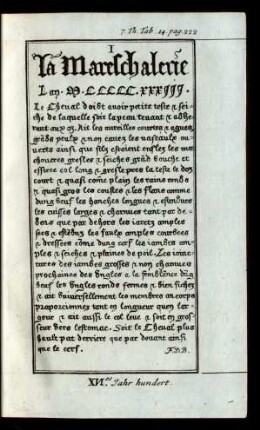 7 Th. Tab. 14. pag. 222
I
La Mareschalerie
Lan. M.CCCCC.XXXIIII.
Le Cheual doibt auoir petite teste & sei-
che de laquelle soit la peau tenant & adhe-
rant aux oz. Ait les aureilles courtes & agues,
gros yeulx & non cauez les naseaulx ou-
uerts ainsi que silz estoient enflez les ma-
choueres gresles & seiches grãd bouche et
essiere col long & gresle pres la teste le dos
court & quasi come plain les rains ronds
& quasi gros les coustes & les flans comme
dung beuf les honches longues & estendues
les cuisses larges & charnues tant par de-
dens que par dehors les iarets amples
secs & estẽduz les faulx amples courbees
& dressees cõme dung cerf les iambes am-
ples & seiches & plaines de poil. Les ioinc-
tures des iambes grosses & non charnues
prochaines des ũngles a la semblance dũg
beuf les ũngles rondes fermes & bien fichez
& ait vniuersellement les membres du corps
proporcionnez tant en longueur quen lar-
gour & ait aussi le col leue & soit en gros-
seur vers lestomac. Soit le Cheual plus
hault par derriere que par deuant ainsi
que le cerf.
XVI.ter Jahr hundert.